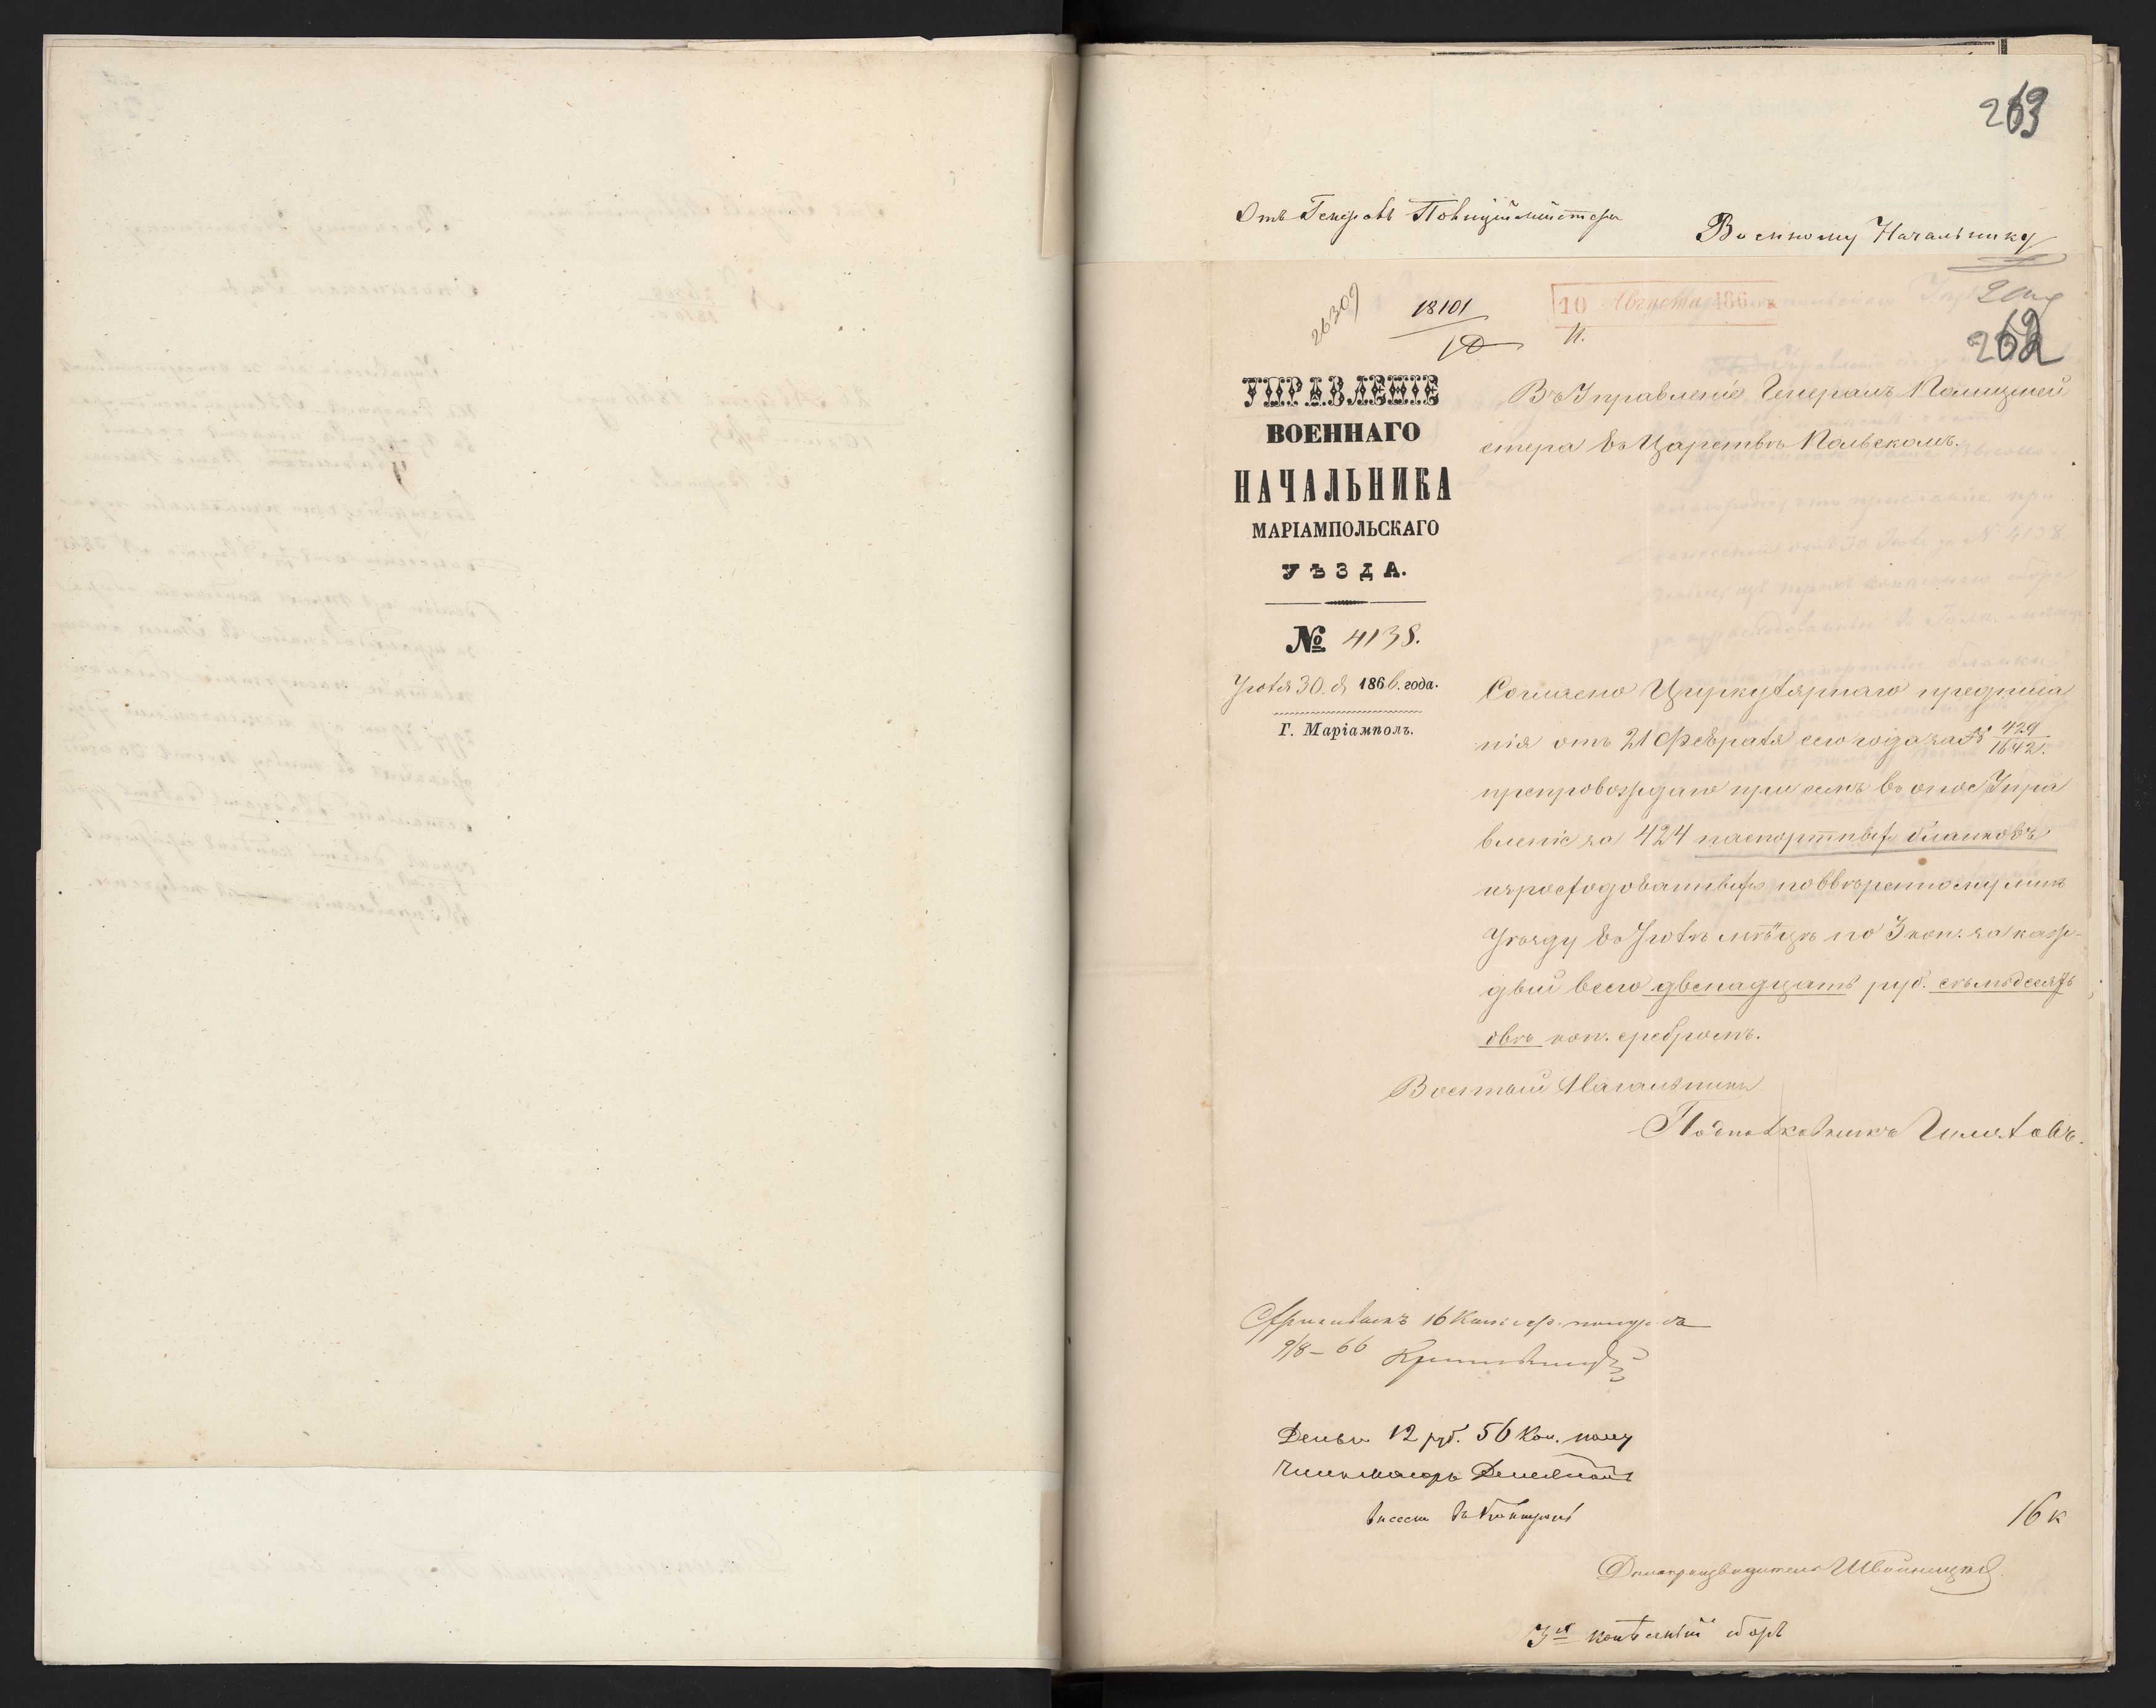 263
Отъ Генералъ Полиціймейстера
Военному Начальнику
26309
18101
10 Августа 1866
11.
262
УПРАВЛЕНІЕ
ВОЕННАГО
НАЧАЛЬНИКА
МАРІАМПОЛЬСКАГО
УѢЗДА.
№ 4138.
Іюля 30 д. 1866. года.
Г. Маріамполь.
Въ Управленіе Генералъ Полицмей
стера въ Царствѣ Польскомъ.
Согласно Циркулярнаго предписа
нія отъ 21 Февраля сего года за № 429/1642.
препровождаю при семъ въ оное Упра
вленіе за 424 паспортныхъ бланковъ
израсходованныхъ по ввѣренному мнѣ
Уѣзду въ Іюлѣ мѣсцѣ по 3 коп. за каж-
дый всего двенадцать руб. семьдесятъ
двѣ коп. серебромъ.
Военный Начальникъ
Подполковникъ
16 Коп. сер.
9/8 – 66
Деньги 12 руб. 56 Коп. полу
внесен въ Контроль
16 к
Делопроизводитель
3х копѣечный сборъ